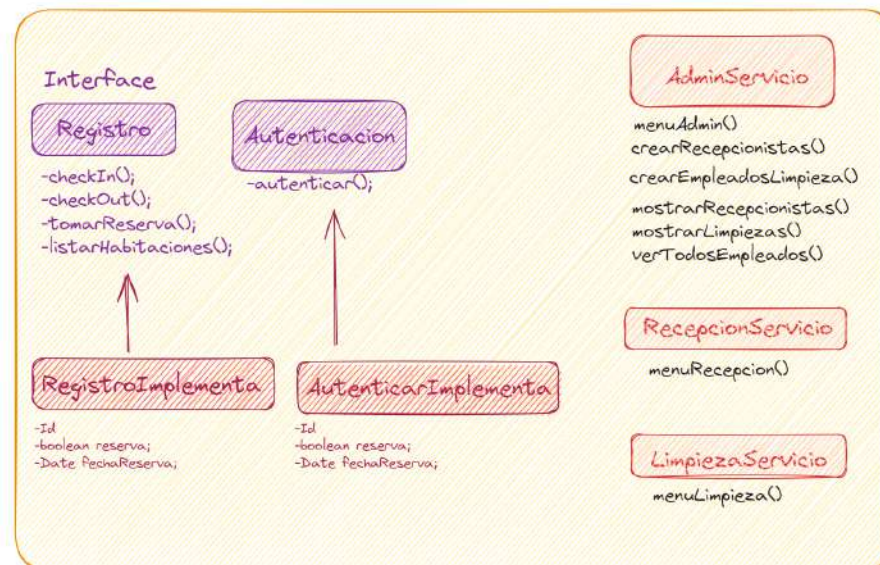 Interface
Registro
-checkIn();
-checkOut();
-tomarReserva();
-listarHabitaciones();
Autenticacion
-autenticar();
RegistroImplementa
-Id
-boolean reserva;
-Date fechaReserva;
AutenticarImplementa
-Id
-boolean reserva;
-Date fechaReserva;
AdminServicio
menuAdmin()
crearRecepcionistas()
crearEmpleadosLimpieza()
mostrarRecepcionistas()
mostrarLimpiezas()
verTodosEmpleados()
RecepcionServicio
menuRecepcion()
LimpiezaServicio
menuLimpieza()